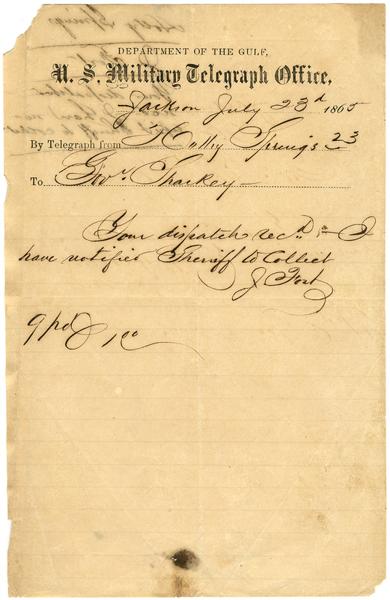 DEPARTMENT OF THE GULF,
U. S. Military Telegraph Office,
Jackson July 23d 1865
By Telegraph from Holly Springs 23
To Gov. Sharkey
Your dispatch recd. I
have notified Sheriff to Collect
J Fort
9 pd 100